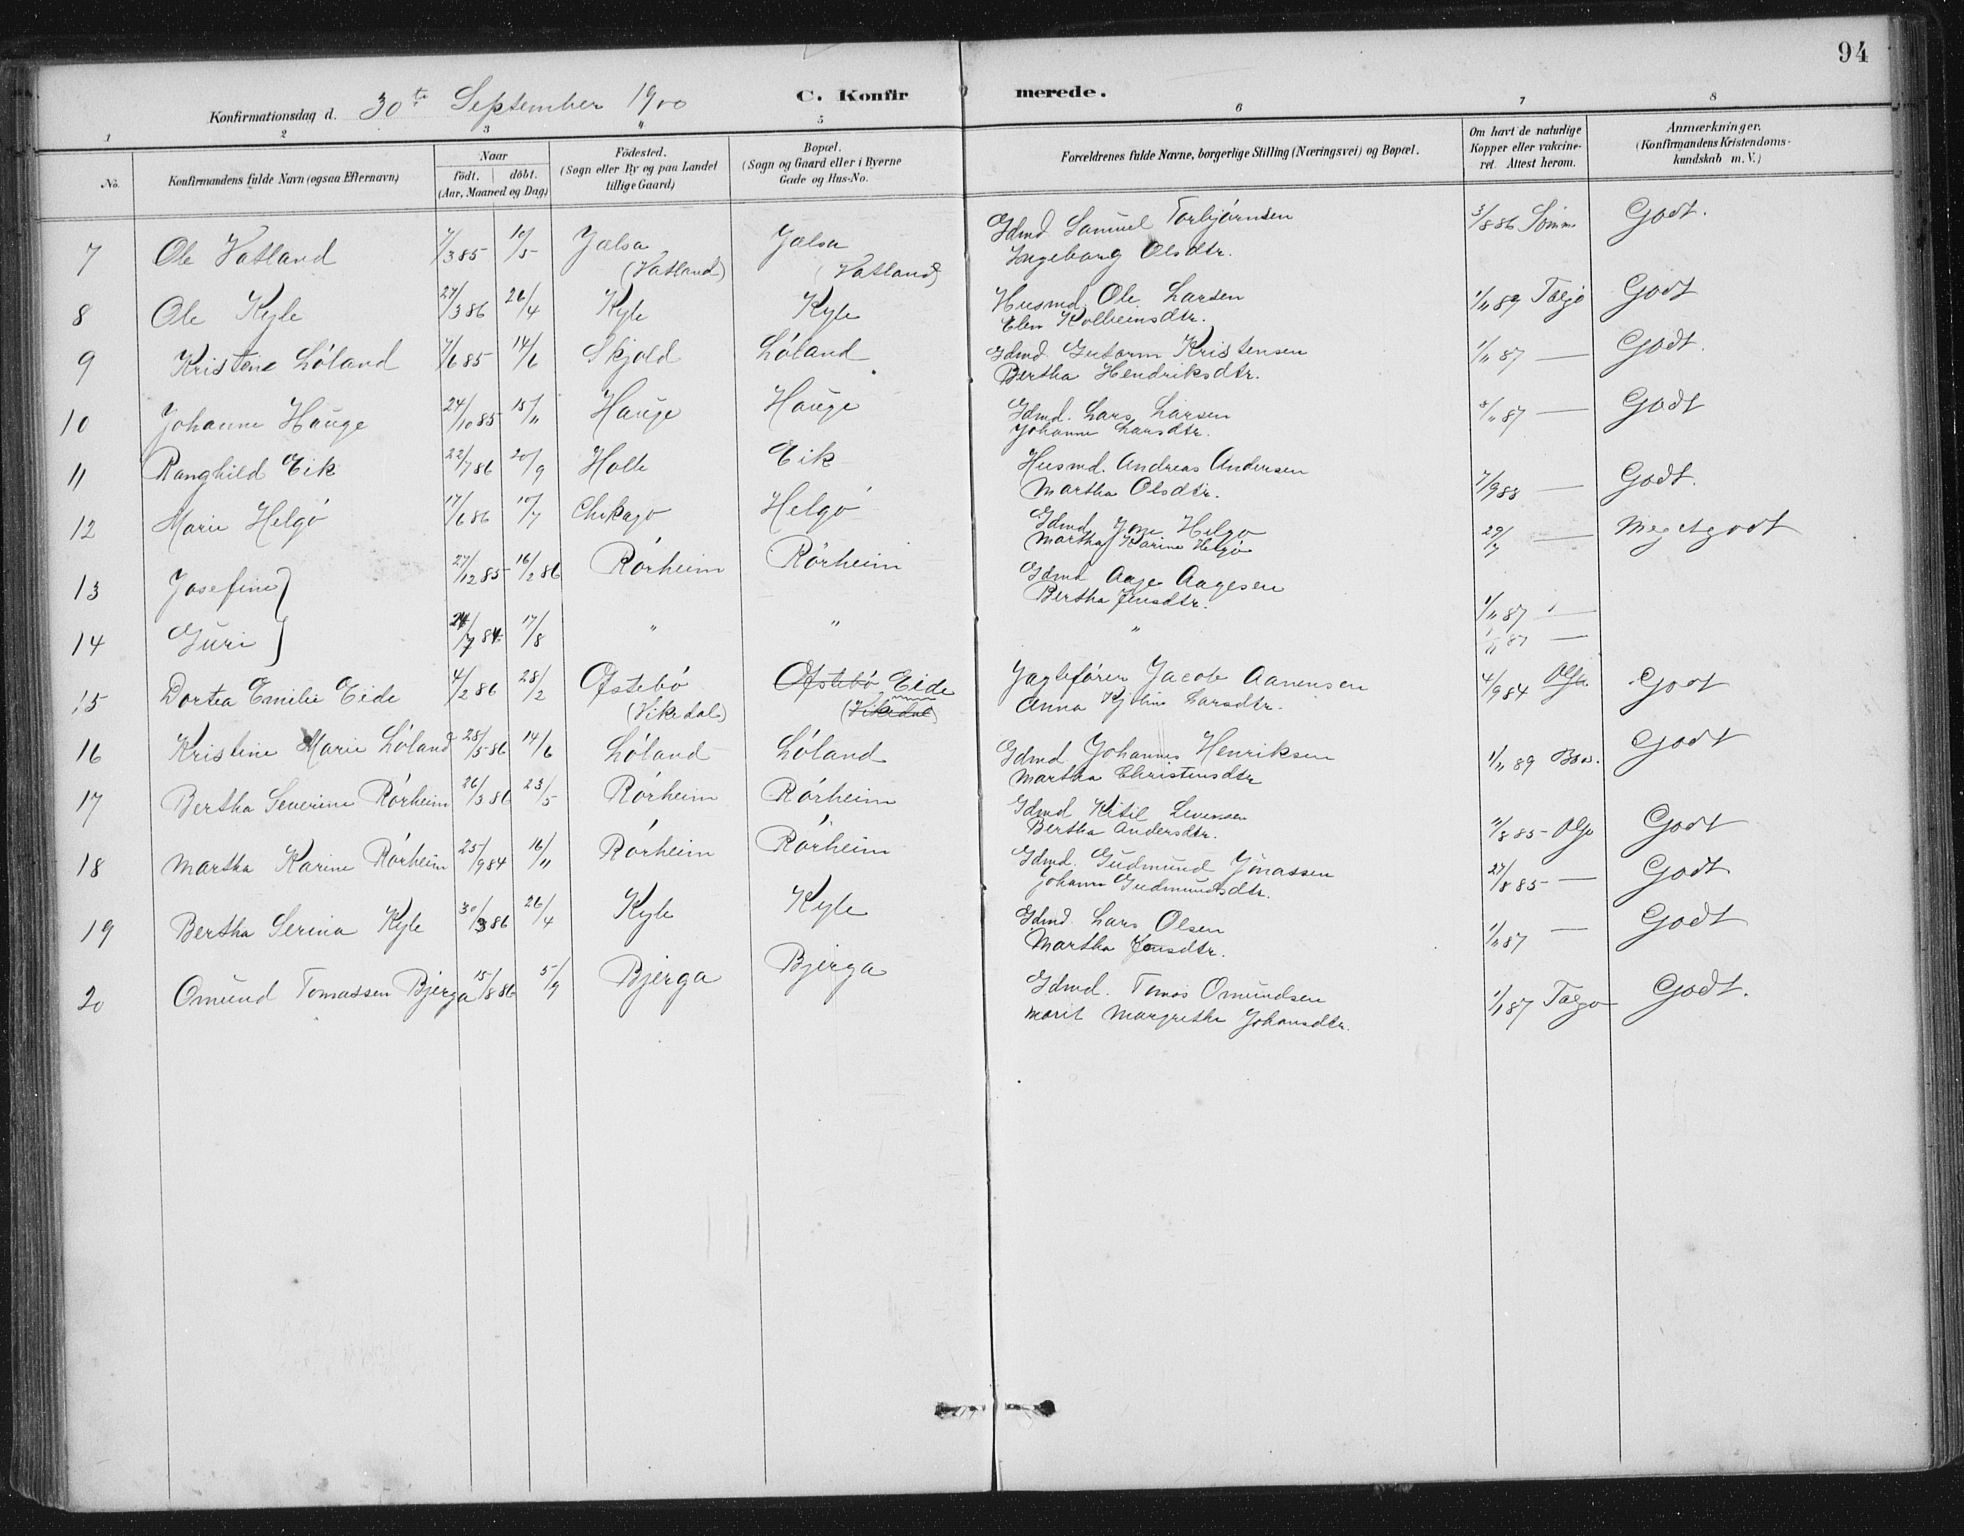 94
Konfirmationsdag d. 30te September 1900 C. Konfirmerede.
1 2 3 4 5 6 7 8
No. Konfirmandens fulde Navn (ogsaa Efternavn) Naar födt. döbt. (Aar, Maaned og Dag) Födested. (Sogn eller By og paa Landet tillige Gaard) Bopæl. (Sogn og Gaard eller i Byerne Gade og Hus-No. Forældrenes fulde Navne, borgerlige Stilling (Næringsvei) og Bopæl. Om havt de naturlige Kopper eller vakcineret. Attest herom. Anmærkninger. (Konfirmandens Kristendomskundskab m. V.)
7 Ole Vatland 7/3 85 10/5 Jælsa (Vatland) Jælsa (Vatland) Gdmd Samuel Torbjørnsen 3/8 86 Sömme Godt.
Ingeborg Olsdtr.
8 Ole Kyle 27/3 86 26/4 Kyle Kyle Husmd. Ole Larsen 1/11 89 Talgö Godt
Elen Kolbeinsdtr.
9 Kristene Löland 7/6 85 14/6 Skjold Löland Gdmd Gutorm Kristensen 1/11 87 — Godt.
Bertha Hendriksdtr.
10 Johanne Hauge 24/10 85 15/11 Hauge Hauge Gdmd. Lars Larsen 8/11 87 — Godt
Johanne Larsdtr.
11 Ranghild Eik 22/7 86 20/9 Holte Eik Husmd. Andreas Andersen 7/9 88 — Godt.
Martha Olsdtr.
12 Marie Helgö 17/6 86 10/7 Chikago Helgö Gdmd Helgö 29/7 — Megetgodt
Martha Karine Helgö
13 Josefine 27/12 85 16/2 86 Rörheim Rörheim Gdmd Aage Aagesen 1/11 87 —
Bertha Jensdtr.
14 Guri 24/7 84 17/8 " " " 1/11 87 —
15 Dortea Emilie Eide 4/2 86 28/2 Ofstebö (Vikedal) Ofstebö Eide (Vikedal) Jagtefører Jacob Aanensen 4/9 84 Godt
Anna Larsdtr.
16 Kristine Marie Löland 28/5 86 14/6 Löland Löland Gdmd Johannes Henriksen 1/11 89 Godt
Martha Christensdtr
17 Bertha Severine Rörheim 26/3 86 23/5 Rörheim Rörheim Gdmd Kitil 11/8 85 Godt
Bertha Andersdtr.
18 Martha Karine Rörheim 25/9 84 16/11 Rörheim Rörheim Gdmd. Gudmund Jonassen 27/8 85 — Godt
Johanne Gudmundsdtr.
19 Bertha Serina Kyle 30/3 86 26/4 Kyle Kyle Gdmd. Lars Olsen 1/11 87 — Godt
Martha Jensdtr.
20 Omund Tomassen Bjerga 15/8 86 5/9 Bjerga Bjerga Gdmd. Tomas Omundsen 1/11 87 Talgö Godt.
Marit Margrethe Johansdtr.